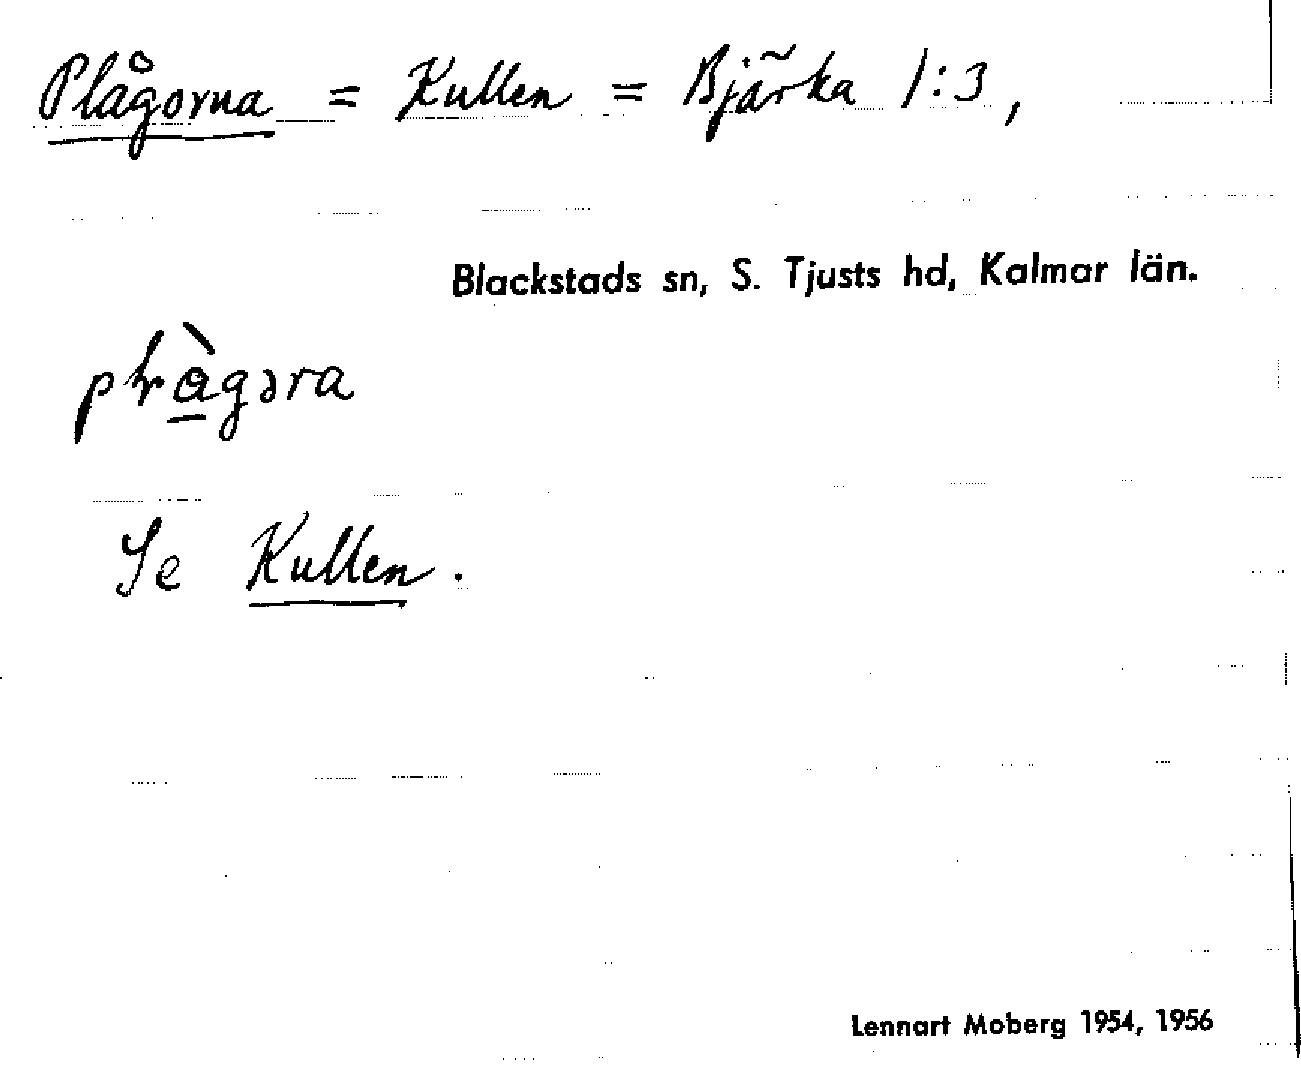 Plågorna = Kullen = Bjärka 1:3,
Blackstads sn, S. Tjusts hd, Kalmar län.
Se Kullen.
Lennart Moberg 1954, 1956